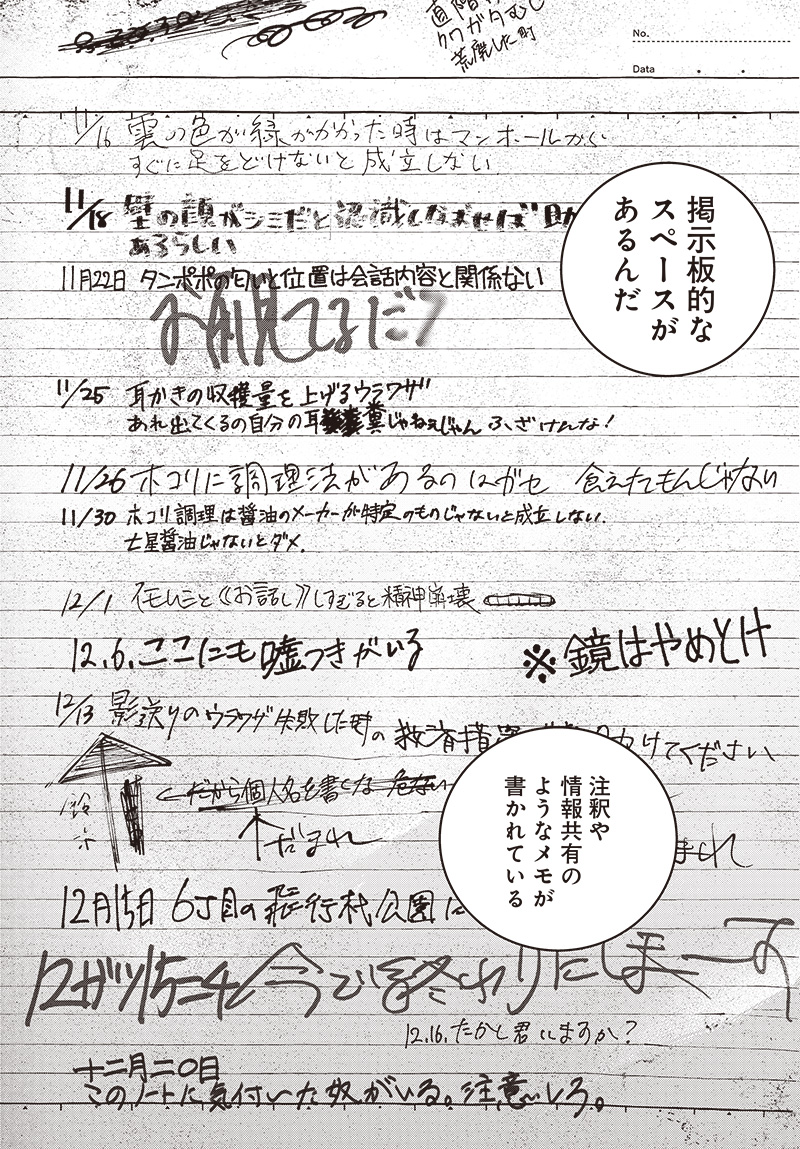 クワガタむし
荒廃した町
No.
Data
11/16 雲の色が緑がかった時はマンホールから
すぐに足をどけないと成立しない
掲示板的な
スペースが
あるんだ
11/18 壁の顔がシミだと認識しなおせば 助
あるらしい
11月22日 タンポポの匂いと位置は会話内容と関係ない
お前見てるだろ
11/25 耳かきの収穫量を上げるウラワザ
あれ出てくるの自分の耳糞じゃねぇじゃん ふざけんな!
11/26 ホコリに調理法があるのはガセ 食えたもんじゃない
11/30 ホコリ調理は醤油のメーカーが特定のものじゃないと成立しない.
七星醤油じゃないとダメ.
12/1 イモムシと《お話し》しすぎると精神崩壊
12.6.ここにも嘘つきがいる
※鏡はやめとけ
12/13 影送りのウラワザ失敗した時の救済措置 けてください
←だから個人名を書くな 危ない
↑だまれ
まれ
注釈や
情報共有の
ようなメモが
書かれている
12月15日 6丁目の飛行機公園に
今で終わりにしまーす
12.16.たかと君いますか?
十二月二〇日
このノートに気付いた奴がいる。注意しろ。